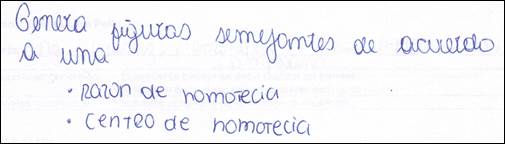 Genera figuras semejantes de acuerdo
a una
· razon de homotecia
· centro de homotecia